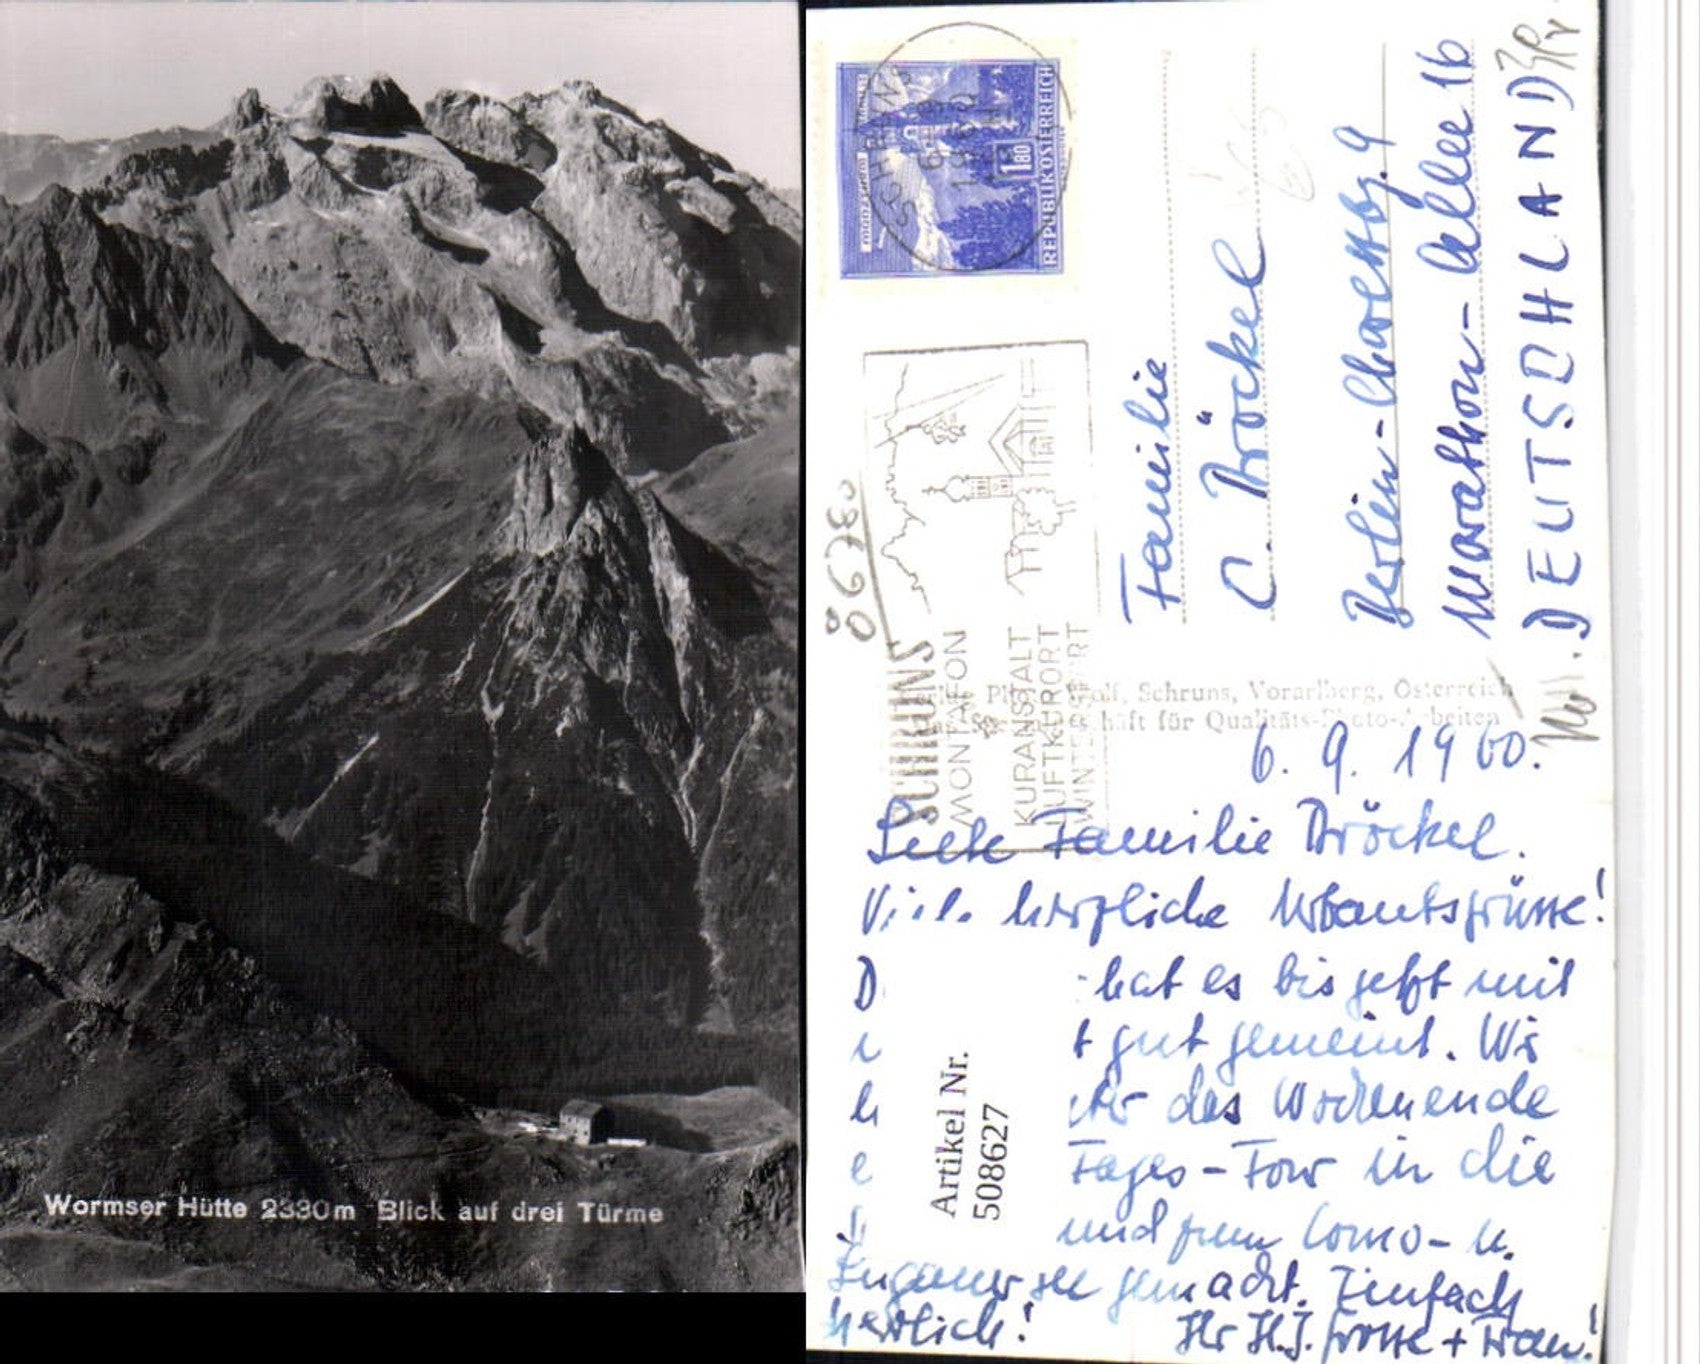 Wormser Hütte 2330m Blick auf drei Türme
REPUBLIK ÖSTERREICH
1.80
SCHRUNS
6. 9. 60
SCHRUNS
MONTAFON
KURANSTALT
LUFTKURORT
WINTERSPORT
Familie
C. Bröckel
Berlin-Charlottbg. 9
Marathon-Allee 16
DEUTSCHLAND
Wolf, Schruns, Vorarlberg, Österreich
für Qualitäts-Photo-Arbeiten
6. 9. 1960.
Liebe Familie Bröckel.
Viele herzliche Urlaubsgrüsse!
D hat es bis jetzt mit
t gut gemeint. Wi
das Wochenende
e Tages-Tour in die
und zum Como- u.
Luganer see gemacht. Einfach
herrlich! Ihr H.J. Grosse + Frau!
Artikel Nr.
508627